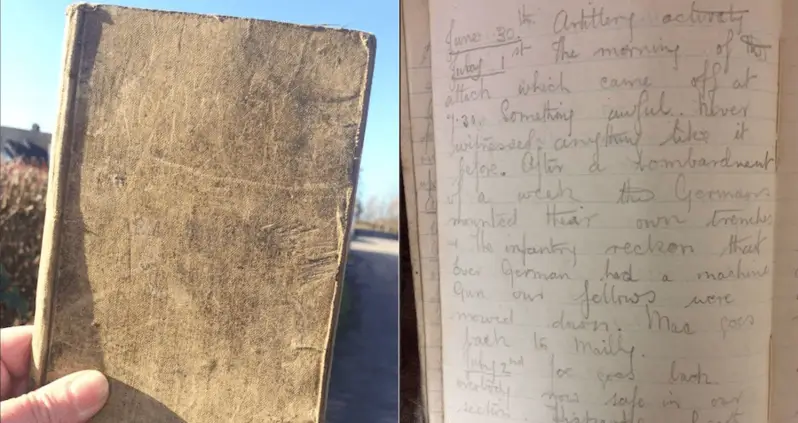 June 30. th Artillery activity
July 1st The morning of the
attack which came off at
7.30. Something awful. Never
witnessed anything like it
before. After a bombardment
of a week the Germans
mounted their own trenches
& the infantry reckon that
ever German had a machine
Gun our fellows were
mowed down. Mac goes
back to Mailly.
July 2nd goes back
now safe in our
section.